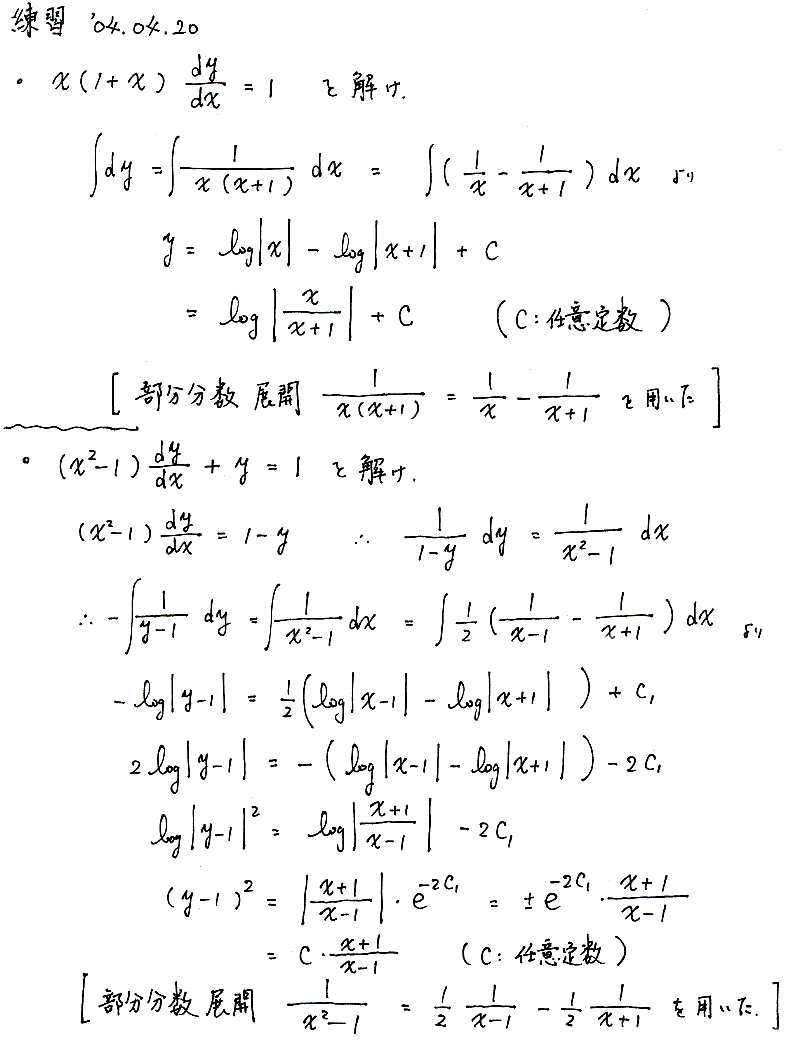 練習 '04.04.20
・ x(1+x) dy/dx = 1 を解け.
∫dy = ∫ 1/(x(x+1)) dx = ∫( 1/x - 1/(x+1) ) dx より
y = log|x| - log|x+1| + C
= log| x/(x+1) | + C (C:任意定数)
[ 部分分数展開 1/(x(x+1)) = 1/x - 1/(x+1) を用いた ]
・ (x²-1) dy/dx + y = 1 を解け.
(x²-1) dy/dx = 1-y ∴ 1/(1-y) dy = 1/(x²-1) dx
∴ -∫ 1/(y-1) dy = ∫ 1/(x²-1) dx = ∫ 1/2 ( 1/(x-1) - 1/(x+1) ) dx より
-log|y-1| = 1/2 ( log|x-1| - log|x+1| ) + C₁
2 log|y-1| = -( log|x-1| - log|x+1| ) - 2C₁
log|y-1|² = log| (x+1)/(x-1) | - 2C₁
(y-1)² = | (x+1)/(x-1) | · e^(-2C₁) = ± e^(-2C₁) · (x+1)/(x-1)
= C · (x+1)/(x-1) (C:任意定数)
[ 部分分数展開 1/(x²-1) = 1/2 1/(x-1) - 1/2 1/(x+1) を用いた. ]